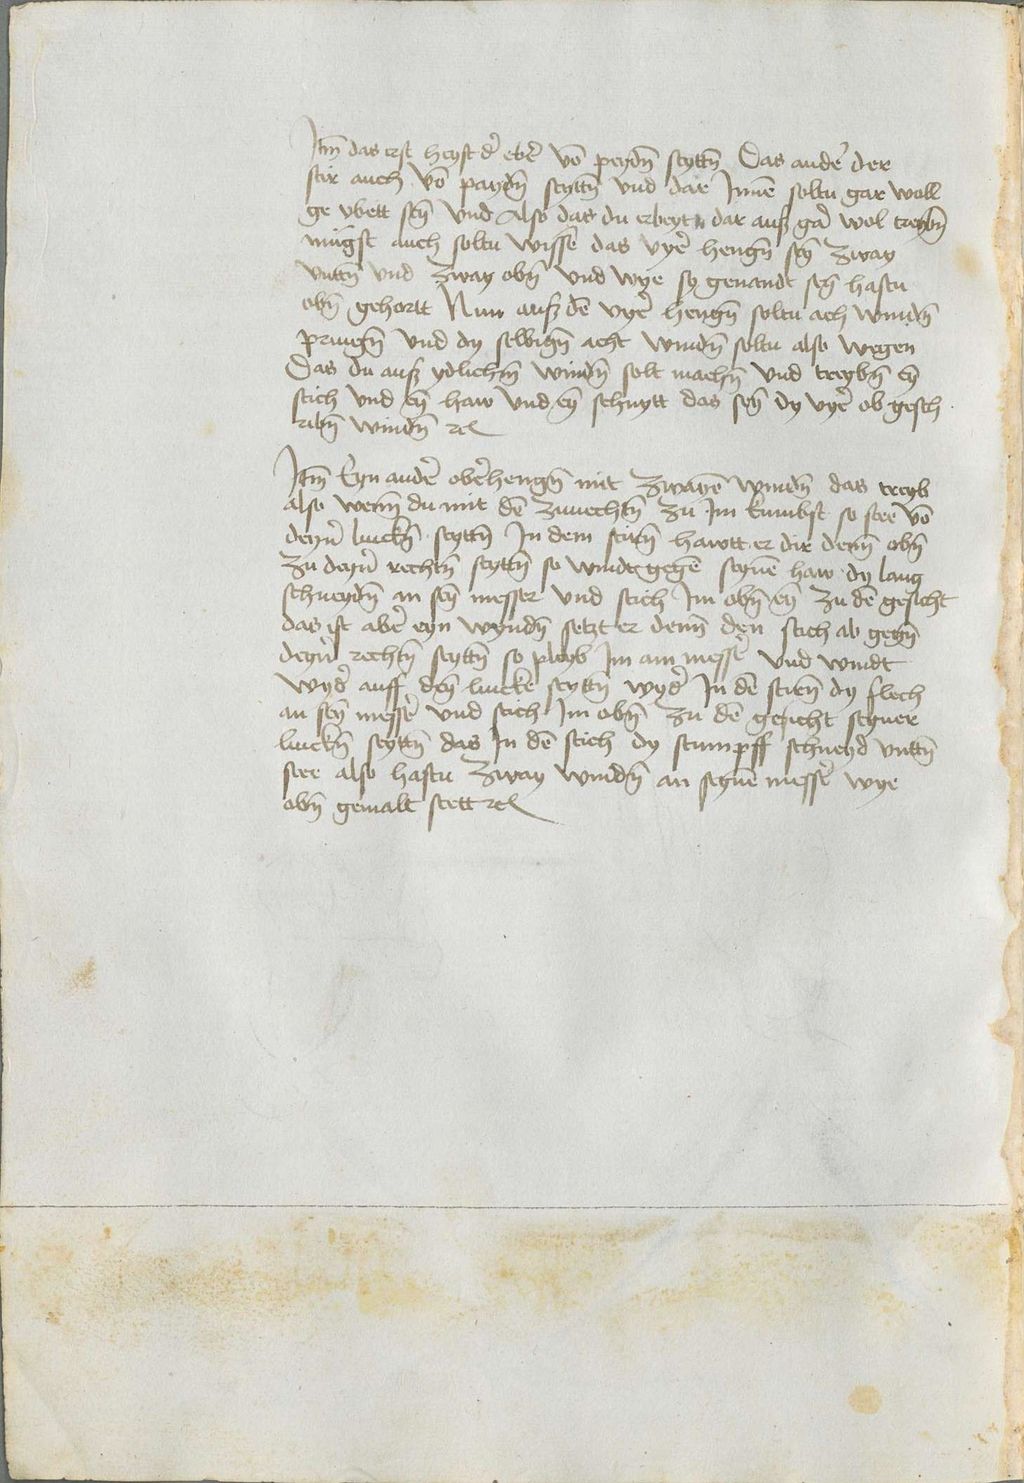 Itm̄ das erst heyst d' ebe͂r vō peydn̄ seyttn̄ Das ande͂r der
stir auch vō paydn̄ seyttn̄ vnd dar Inn͂e soltu gar woll
ge vbett sey͂ vnd Also das du erbeytn dar auß gar wol treybn̄
mügst auch soltu wisse͂ das vye͂r hengn̄ sey͂ zway
vnttn̄ vnd zway obn̄ vnd wye sy genandt sey͂ hastu
obn̄ gehortt Nun auß de͂ vye͂r hengn̄ soltu ach windn̄
pringn̄ vnd dy selbign̄ acht windn̄ soltu also wegen
Das du auß ydlichm̄ windn̄ solt machn̄ vnd treybn̄ ey͂
stich vnd ey͂ haw vnd ey͂ schnytt das sey͂ dy vye͂r ob gesch
ribn̄ windn̄ rc
Itm̄ Eyn ande͂r obe͂rhengn̄ mit zwaye͂ windn̄ das treyb
also wenn̄ du mit de͂ zuvechtn̄ zu Im kumbst so stee vō
deyn͂ linckn̄ seyttn̄ In dem stirn̄ hawtt er dir denn̄ obn̄
zu deyn͂ rechtn̄ seyttn̄ so windt gege͂ seyne͂ haw dy lang
schneydn̄ an sey͂ messer vnd stich Im obn̄ ey͂ zu de͂ gesicht
das ist abe͂r eyn wyndn̄ setzt er denn̄ den stich ab gegn̄
deyn͂ rechtn̄ seyttn̄ so pleyb Im am messe͂r vnd windt
wyd͂ auff dey͂ lincke seyttn̄ wyd͂ In de͂ stirn̄ dy flech
an sey͂ messe͂r vnd stich Im obn̄ zu de͂ gesicht seyner
linckn̄ seyttn̄ das In de͂ stich dy stumpff schneyd vnttn̄
stee also hastu zway windn̄ an seyne͂ messe͂r wye
obn̄ gemalt stett rc